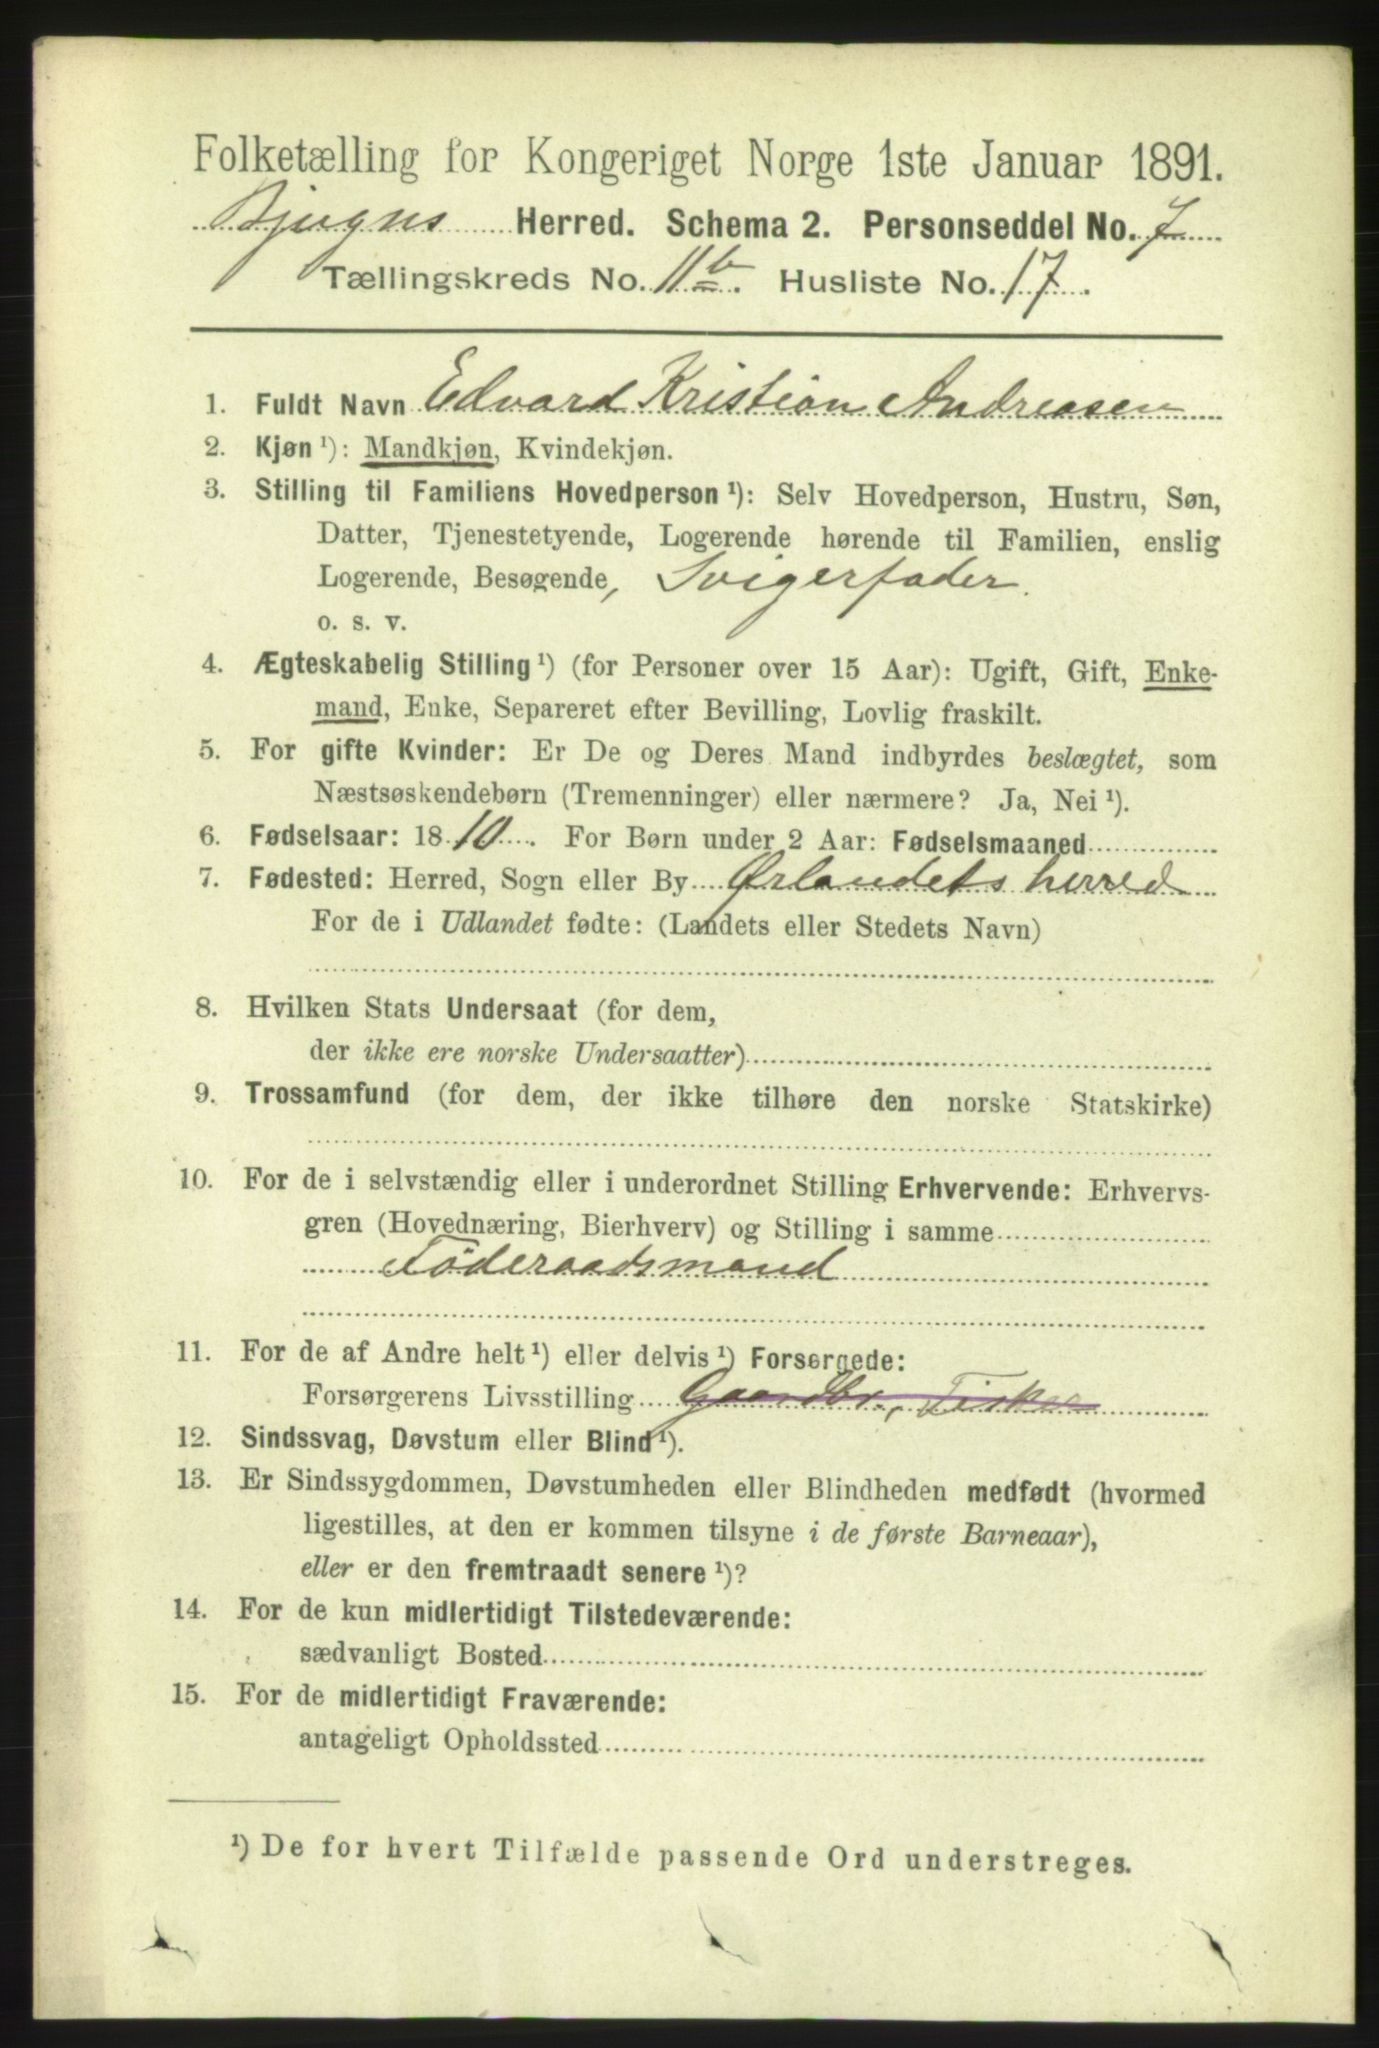 Folketælling for Kongeriget Norge 1ste Januar 1891.
Bjugns Herred. Schema 2. Personseddel No. 7
Tællingskreds No. 11b. Husliste No. 17.
1. Fuldt Navn Edvard Kristian Andreasen
2. Kjøn ¹): Mandkjøn, Kvindekjøn.
3. Stilling til Familiens Hovedperson ¹): Selv Hovedperson, Hustru, Søn,
Datter, Tjenestetyende, Logerende hørende til Familien, enslig
Logerende, Besøgende, Svigerfader.
o. s. v.
4. Ægteskabelig Stilling ¹) (for Personer over 15 Aar): Ugift, Gift, Enke-
mand, Enke, Separeret efter Bevilling, Lovlig fraskilt.
5. For gifte Kvinder: Er De og Deres Mand indbyrdes beslægtet, som
Næstsøskendebørn (Tremenninger) eller nærmere? Ja, Nei ¹).
6. Fødselsaar: 1810. For Børn under 2 Aar: Fødselsmaaned
7. Fødested: Herred, Sogn eller By Ørlandets herred
For de i Udlandet fødte: (Landets eller Stedets Navn)
8. Hvilken Stats Undersaat (for dem,
der ikke ere norske Undersaatter)
9. Trossamfund (for dem, der ikke tilhøre den norske Statskirke)
10. For de i selvstændig eller i underordnet Stilling Erhvervende: Erhvervs-
gren (Hovednæring, Bierhverv) og Stilling i samme
Føderaadsmand
11. For de af Andre helt ¹) eller delvis ¹) Forsørgede:
Forsørgerens Livsstilling Gaardbr., Fisker
12. Sindssvag, Døvstum eller Blind ¹).
13. Er Sindssygdommen, Døvstumheden eller Blindheden medfødt (hvormed
ligestilles, at den er kommen tilsyne i de første Barneaar),
eller er den fremtraadt senere ¹)?
14. For de kun midlertidigt Tilstedeværende:
sædvanligt Bosted
15. For de midlertidigt Fraværende:
antageligt Opholdssted
¹) De for hvert Tilfælde passende Ord understreges.